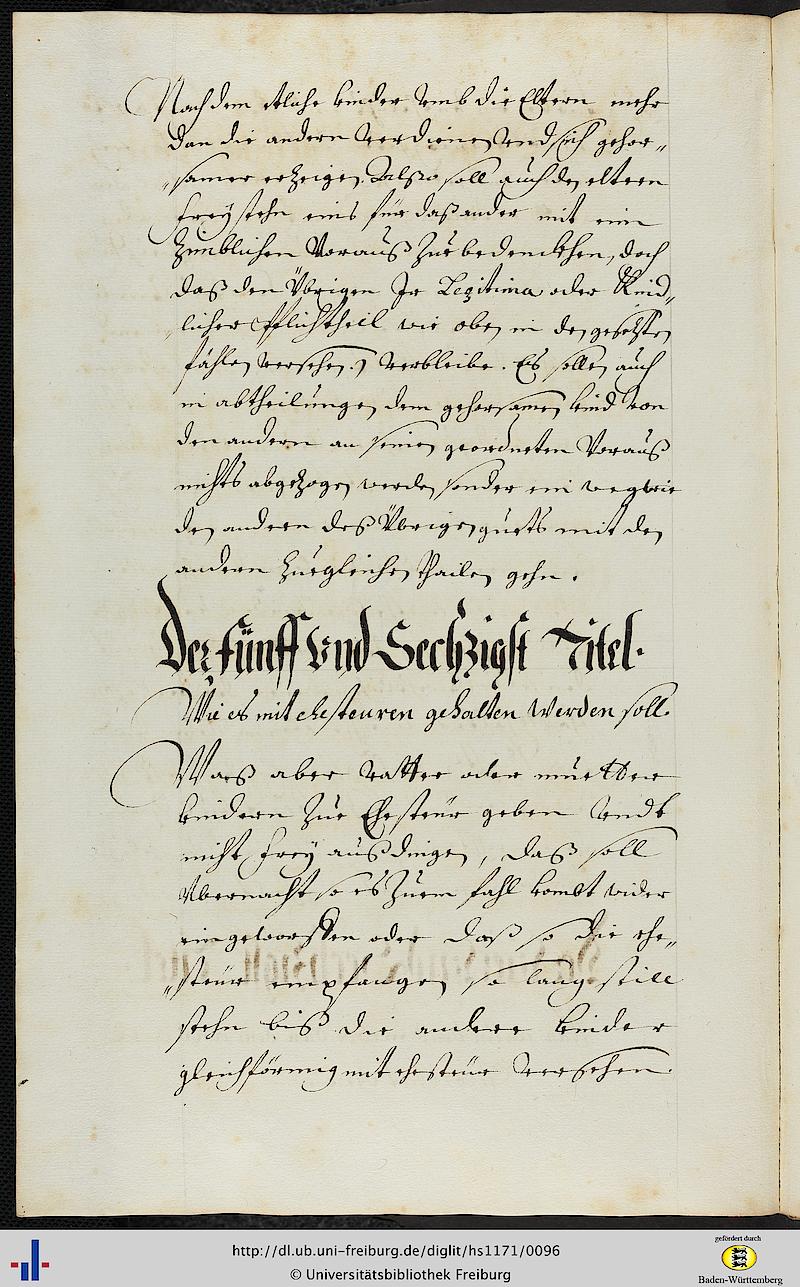 Nach dem etliche kinder vmb die Eltern mehr
dan die andern verdienen vnd sich gehor„
„samer erzeigen, Alßo soll auch den eltern
freÿ stehn eins für daß ander mit eim
zimblichen Vorauß zue bedenckhen, doch
daß den Übrigen Ir Legitima oder Kind„
„licher Pflichtheil wie oben in den gesetzten
fählen versehen.) verbleibe. Es sollen auch
in abtheilungen dem gehorsamen kind von
den andern an seinem geordneten Vorauß
nichts abgezogen werden sonder ein weg wie
den andern deß Übrigen guets mit den
andern zue gleichen thailen gehn.
Der fünff vnd Sechzigst Titel.
Wie es mit ehesteuren gehalten werden soll.
Waß aber vatter oder muetter
kindern zue Ehesteür geben vndt
nicht freÿ außdingen, daß soll
so es zuem fahl kombt wider
eingeworffen oder daß so die ehe„
„steür empfangen so lang still
stehn biß die andere kinder
gleichförmig mit ehesteür versehen.
http://dl.ub.uni-freiburg.de/diglit/hs1171/0096
© Universitätsbibliothek Freiburg
gefördert durch
Baden-Württemberg